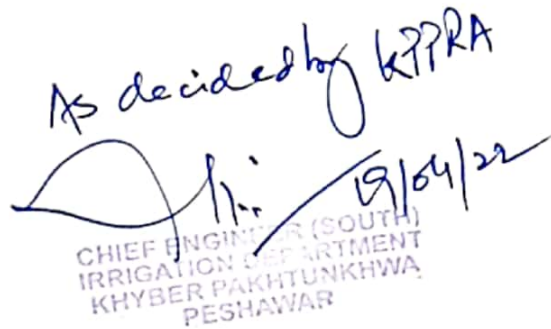 As decided by KPPRA
19/04/22
CHIEF ENGINEER (SOUTH)
IRRIGATION DEPARTMENT
KHYBER PAKHTUNKHWA
PESHAWAR